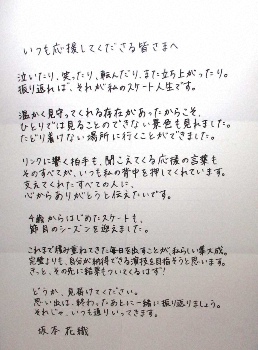 いつも応援してくださる皆さまへ
泣いたり、笑ったり、転んだり、また立ち上がったり。
振り返れば、それが私のスケート人生です。
温かく見守ってくれる存在があったからこそ、
ひとりでは見ることのできない景色も見れました。
たどり着けない場所に行くことができました。
リンクに響く拍手も、聞こえてくる応援の言葉も
そのすべてが、いつも私の背中を押してくれています。
支えてくれたすべての人に、
心からありがとうと伝えたいです。
4歳からはじめたスケートも、
節目のシーズンを迎えました。
これまで積み重ねてきた毎日を出すことが、私らしい集大成。
完璧よりも、自分が納得できる演技を目指そうと思います。
きっと、その先に結果もついてくるはず！
どうか、見届けてください。
思い出は、終わったあとに一緒に振り返りましょう。
それじゃ、いつも通りいってきます。
坂本花織